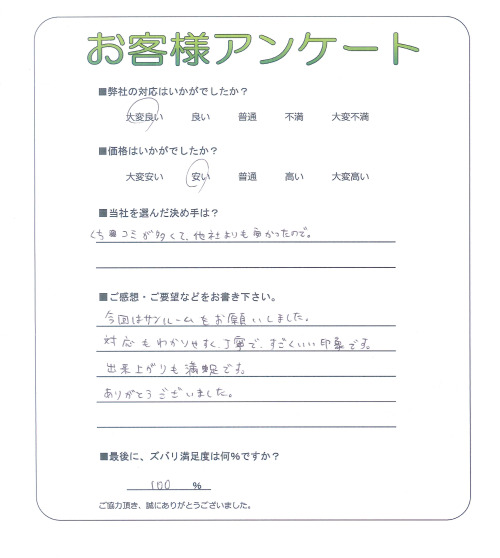 お客様アンケート
■弊社の対応はいかがでしたか?
大変良い 良い 普通 不満 大変不満
■価格はいかがでしたか?
大変安い 安い 普通 高い 大変高い
■当社を選んだ決め手は?
コミが多くて、他社よりも良かったので。
■ご感想・ご要望などをお書き下さい。
今回はサンルームをお願いしました。
対応もわかりやすく、丁寧で、すごくいい印象です。
出来上がりも満足です。
ありがとうございました。
■最後に、ズバリ満足度は何%ですか?
100 %
ご協力頂き、誠にありがとうございました。